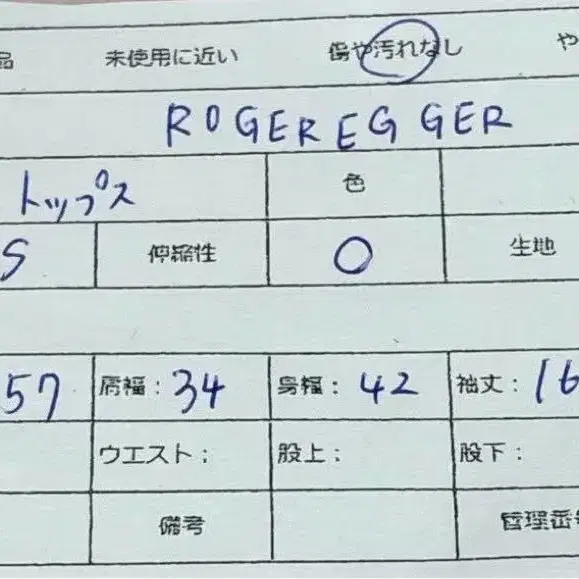 品 未使用に近い 傷や汚れなし や
ROGEREGGER
トップス 色
S 伸縮性 〇 生地
57 肩幅：34 身幅：42 袖丈：16
ウエスト： 股上： 股下：
備考 管理番号